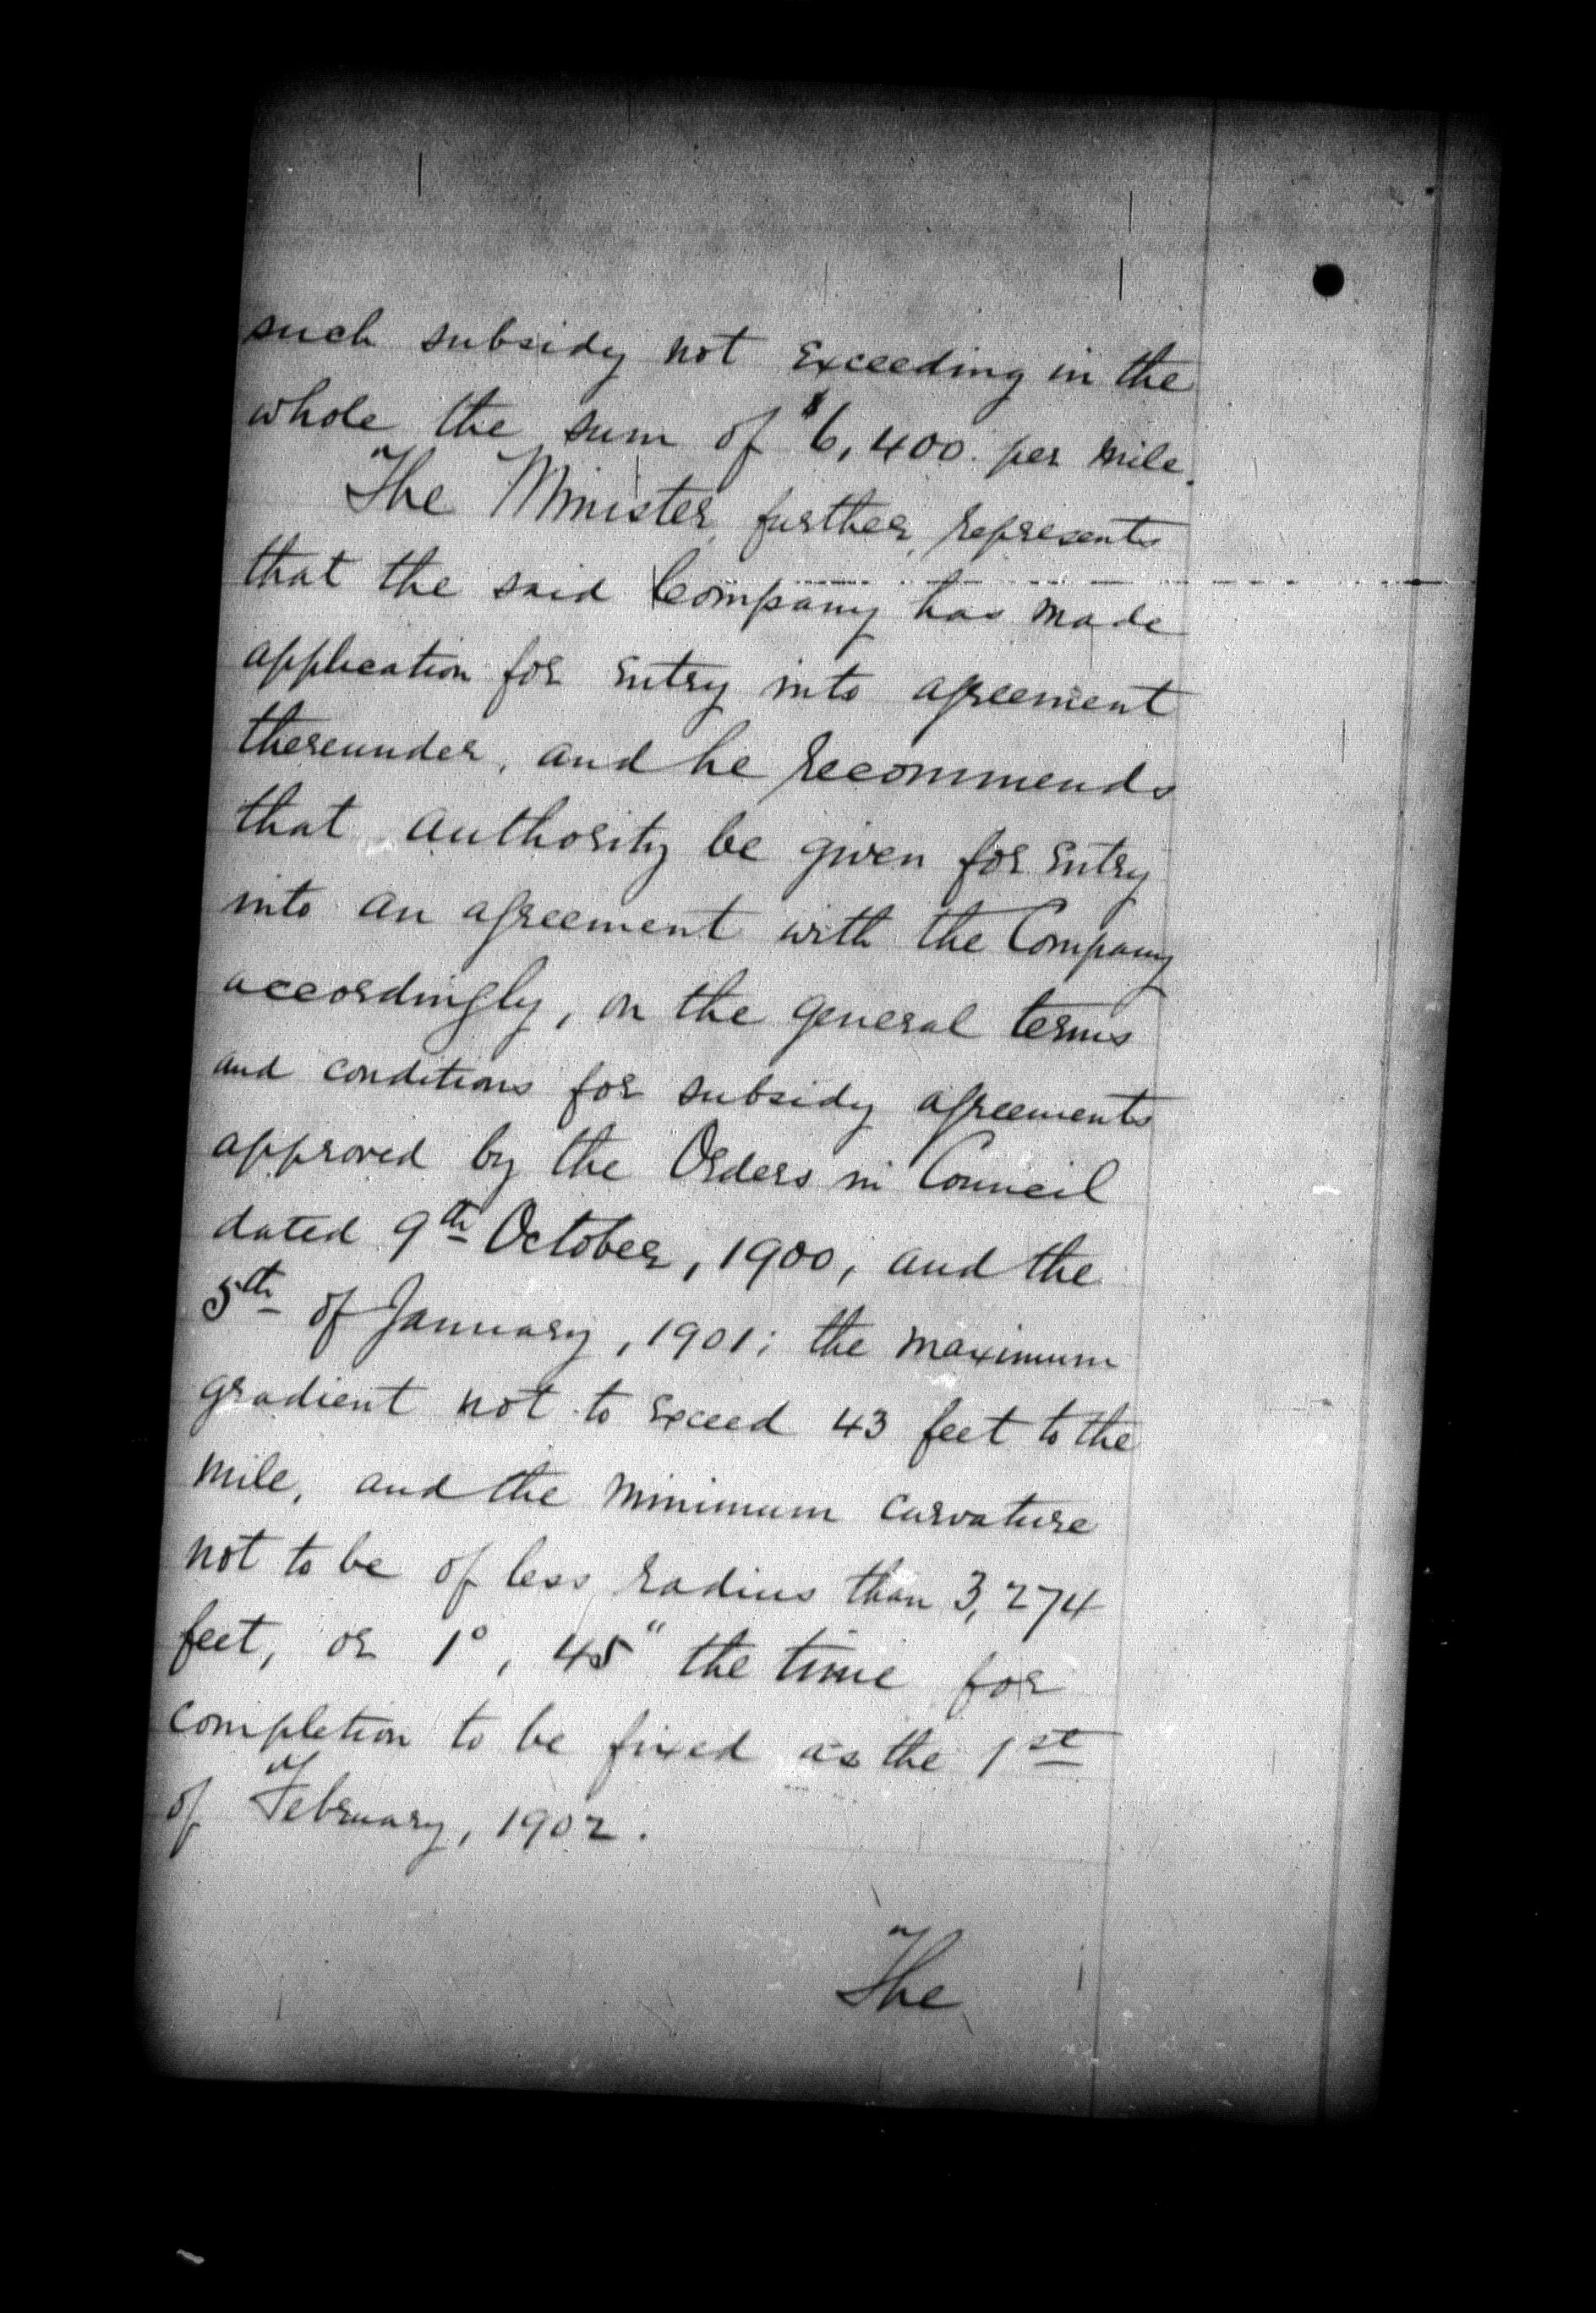 such subsidy not exceeding in the
whole the sum of $6,400. per mile.
The Minister, further, represents
that the said Company has made
application for entry into agreement
thereunder, and he recommends
that authority be given for entry
into an agreement with the Company
accordingly, on the general terms
and conditions for subsidy agreements
approved by the Orders in Council
dated 9th October, 1900, and the
5th of January, 1901; the maximum
gradient not to exceed 43 feet to the
mile, and the minimum curvature
not to be of less radius than 3,274
feet, or 1°, 45" the time for
completion to be fixed as the 1st
of February, 1902.
The